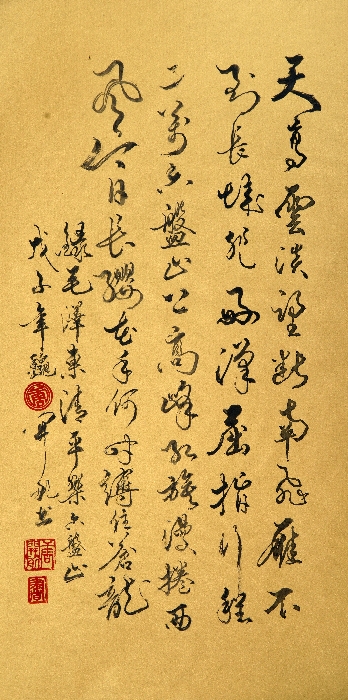 天高雲淡望斷南飛雁不
到長城非好漢屈指行程
二萬六盤山上高峰紅旗漫捲西
風今日長纓在手何時縛住蒼龍
錄毛澤東清平樂六盤山
戊子年